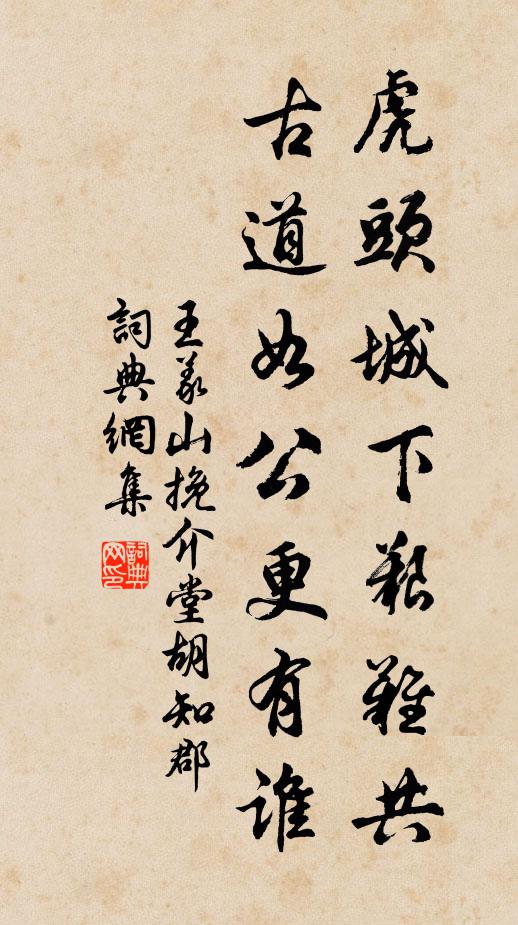 虎頭城下艱難共
古道如公更有誰
王義山挽介堂胡知郡
詞典網集
詞典網印